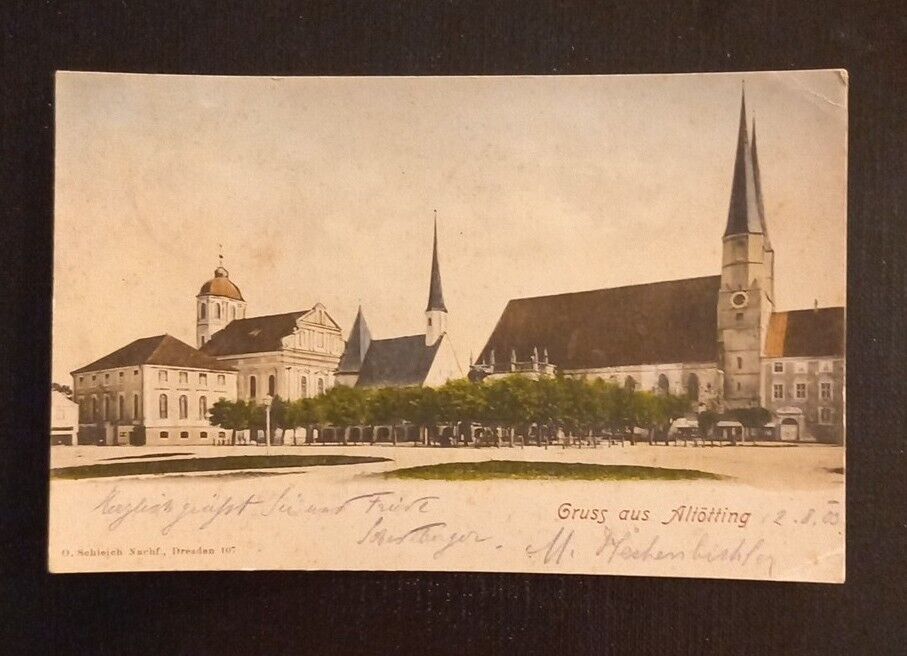 Gruss aus Altötting
2. 8. 03
Herzlich grüßt Sie und
M.
O. Schleich Nachf., Dresden 107